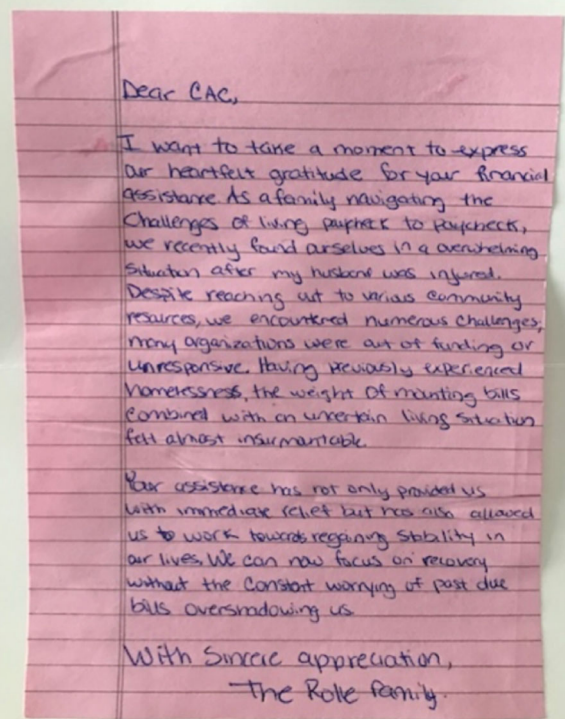 Dear CAC,
I want to take a moment to express
our heartfelt gratitude for your financial
assistance. As a family navigating the
Challenges of living paycheck to paycheck,
we recently found ourselves in a overwhelming
situation after my husband was injured.
Despite reaching out to various community
resources, we encountered numerous challenges,
many organizations were out of funding or
unresponsive. Having previously experienced
homelessness, the weight of mounting bills
combined with an uncertain living situation
felt almost insurmountable.
Your assistance has not only provided us
with immediate relief but has also allowed
us to work towards regaining stability in
our lives. We can now focus on recovery
without the constant worrying of past due
bills overshadowing us
With Sincere appreciation,
The Rolle Family.